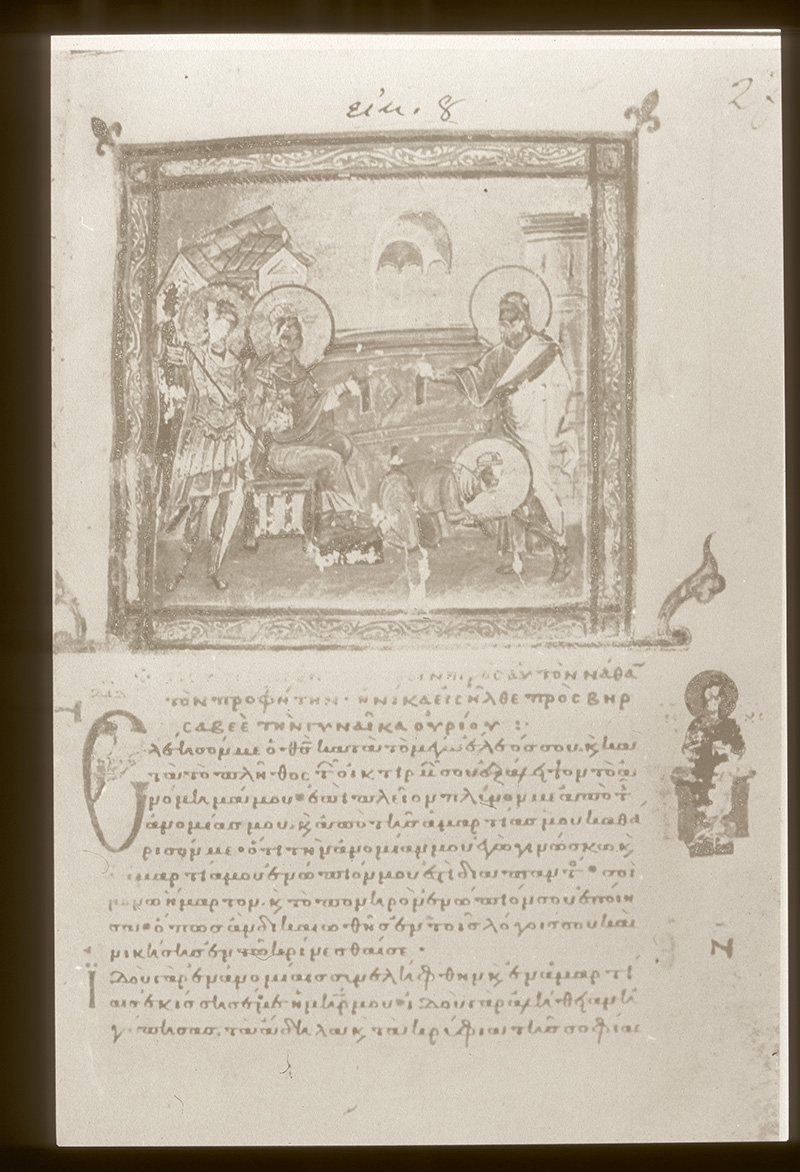 εἰκ. 8
2
πρὸς αὐτὸν Νάθα
τὸν προφήτην· ἡνίκα εἰσῆλθε πρὸς Βηρ
σαβεὲ τὴν γυναῖκα Οὐρίου :
Ἐλέησόν με ὁ θς κατὰ τὸ μέγα ἔλεός σου, κ κατὰ
τὸ πλῆθος τῶν οἰκτιρμῶν σου ἐξάλειψον τὸ ἀ
νόμημά μου· ἐπὶ πλεῖον πλῦνόν με ἀπὸ τ
ἀνομίας μου, κ ἀπὸ τῆς ἁμαρτίας μου καθά
ρισόν με· ὅτι τὴν ἀνομίαν μου ἐγὼ γινώσκω, κ
ἁμαρτία μου ἐνώπιόν μου ἐστὶ διαπαντός· σοὶ
μόνω ἥμαρτον, κ τὸ πονηρὸν ἐνώπιόν σου ἐποίη
σα· ὅπως ἂν δικαιωθῆς ἐν τοῖς λόγοις σου καὶ
νικήσης ἐν τῶ κρίνεσθαί σε·
Ἰδοὺ γὰρ ἐν ἀνομίαις συνελήφθην κ ἐν ἁμαρτί
αις ἐκίσσησέ με ἡ μηρ μου· ἰδοὺ γὰρ ἀλήθειαν ἠ
γάπησας, τὰ ἄδηλα κ τὰ κρύφια τῆς σοφίας
Ν